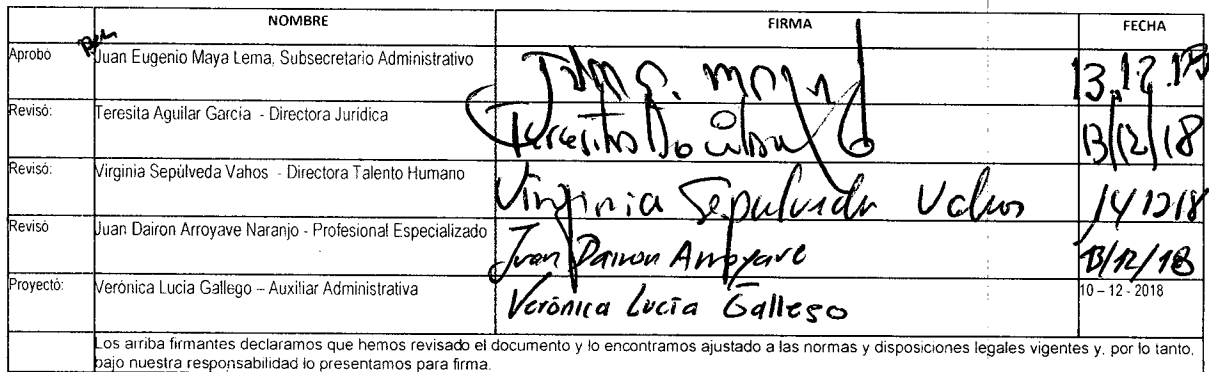 NOMBRE FIRMA FECHA
Aprobó Juan Eugenio Maya Lema, Subsecretario Administrativo 13.12.18
Revisó: Teresita Aguilar García - Directora Jurídica Teresita Aguilar 13/12/18
Revisó: Virginia Sepúlveda Vahos - Directora Talento Humano Virginia Sepulveda Vahos 14 12 18
Revisó Juan Dairon Arroyave Naranjo - Profesional Especializado Juan Dairon Arroyave 13/12/18
Proyectó: Verónica Lucía Gallego – Auxiliar Administrativa Verónica Lucía Gallego 10 – 12 - 2018
Los arriba firmantes declaramos que hemos revisado el documento y lo encontramos ajustado a las normas y disposiciones legales vigentes y, por lo tanto,
bajo nuestra responsabilidad lo presentamos para firma.